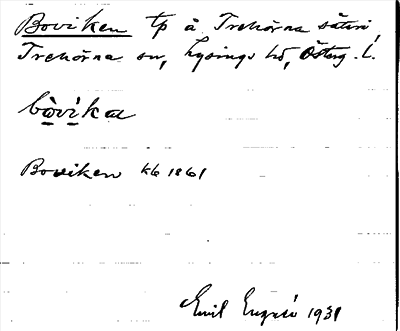 Boviken tp å Trehörna säteri,
Trehörna sn, Lysings hd, Österg. l.
bòvíka
Boviken kb 1861
Emil 1931